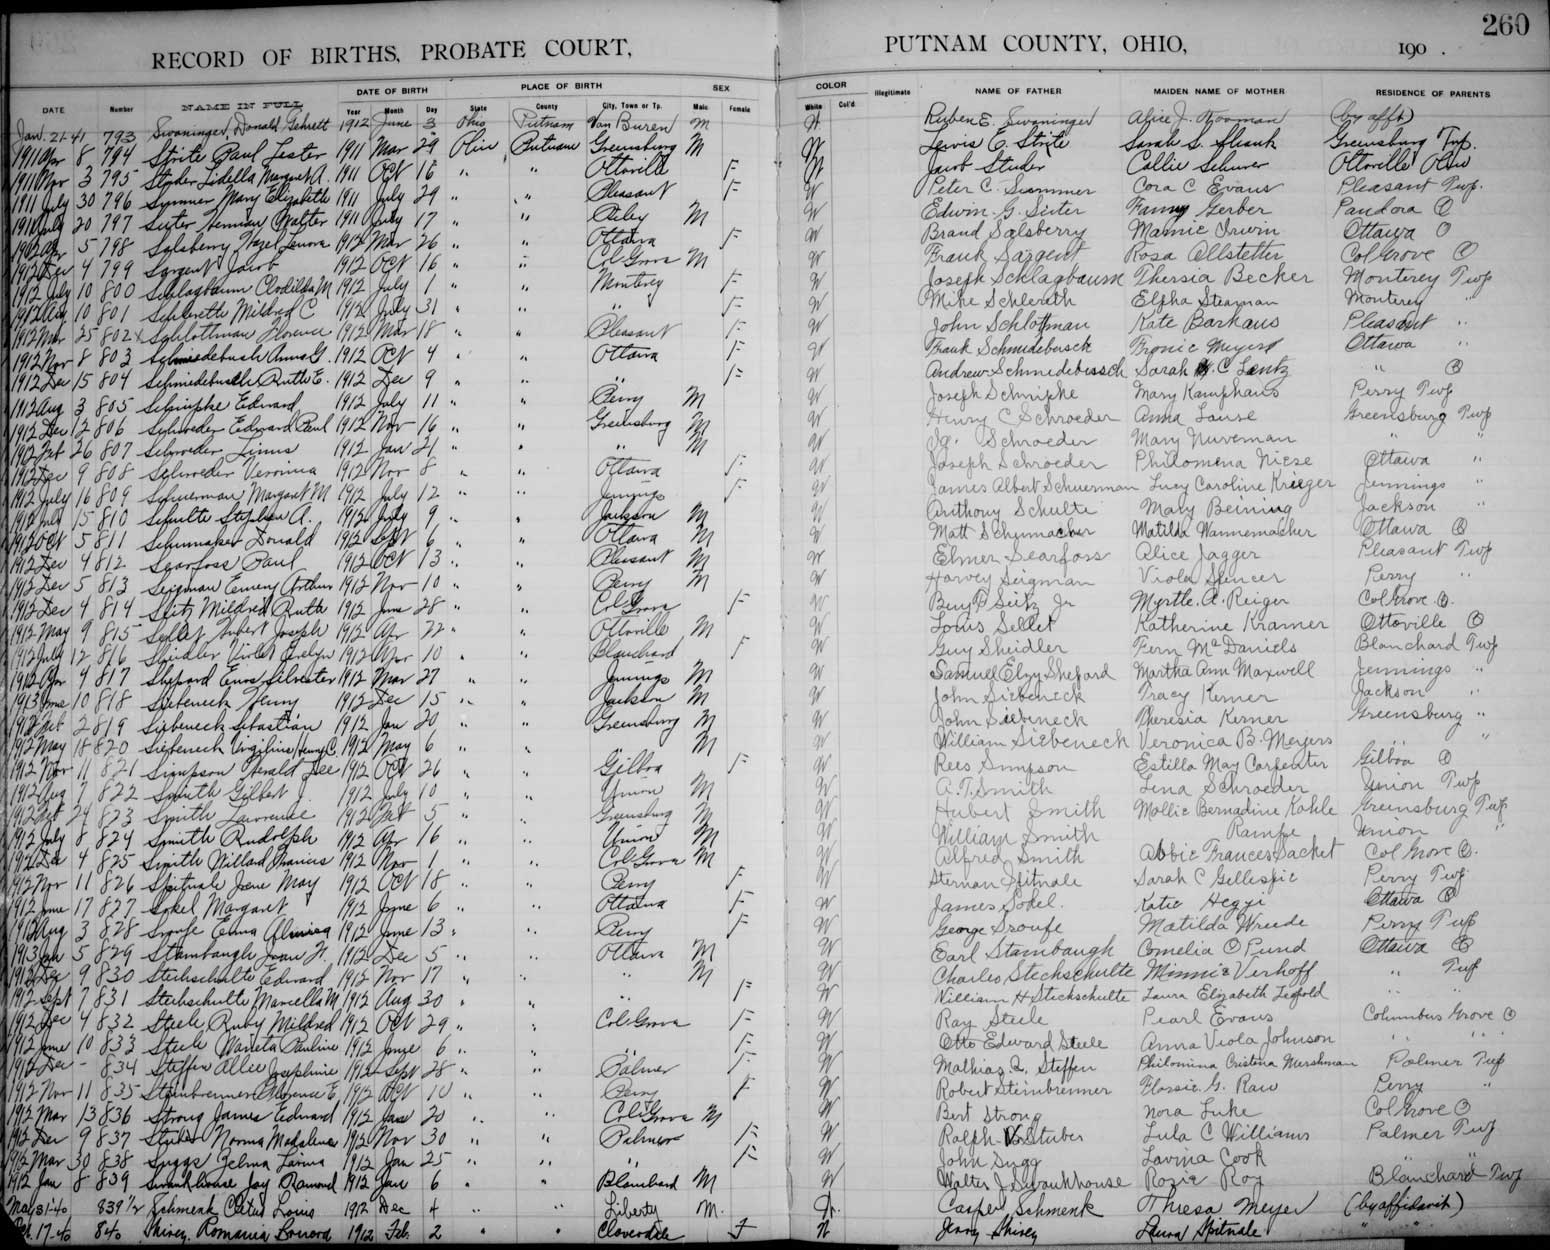 260
RECORD OF BIRTHS, PROBATE COURT, PUTNAM COUNTY, OHIO, 190 .
DATE Number NAME IN FULL DATE OF BIRTH Year Month Day PLACE OF BIRTH State County City, Town or Tp. SEX Male Female COLOR White Col'd Illegitimate NAME OF FATHER MAIDEN NAME OF MOTHER RESIDENCE OF PARENTS
Jan. 21-41 793 Swaninger, Donald 1912 June 3 Ohio Putnam Van Buren M W Ruben E. Swaninger Alice J. (by afft)
1911 Apr 8 794 Strite Paul Lester 1911 Mar 29 Ohio Putnam Greensburg M W Lewis E. Strite Sarah S. Shank Greensburg Twp.
1911 Nov 3 795 Studer Lidella Margaret A. 1911 Oct 16 " " Ottoville F W Jacob Studer Callie Ottoville Ohio
1911 July 30 796 Summer Mary Elizabeth 1911 July 29 " " Pleasant F W Peter C. Summer Cora C Evans Pleasant Twp.
1911 July 20 797 Suter Herman Walter 1911 July 17 " " Riley M W Edwin G. Suter Fanny Gerber Pandora O
1912 Apr 5 798 Salsberry Hazel Lenora 1912 Mar 26 " " Ottawa F W Brand Salsberry Mamie Irwin Ottawa O
1912 Dec 4 799 Sargent Jacob 1912 Oct 16 " " Col Grove M W Frank Sargent Rosa Allstetter Col Grove O
1912 July 10 800 Schlagbaum Clodilda M 1912 July 1 " " Monterey F W Joseph Schlagbaum Thersia Becker Monterey Twp
1912 Aug 10 801 Mildred C 1912 July 31 " " " F W Mike Elpha Stearman Monterey "
1912 Mar 25 802 Schlottman Florence 1912 Mar 18 " " Pleasant F W John Schlottman Kate Barhaus Pleasant "
1912 Nov 8 803 Schmiedebusch Anna G. 1912 Oct 4 " " Ottawa F W Frank Schmiedebusch Fronie Meyers Ottawa "
1912 Dec 15 804 Schmiedebusch Ruth E. 1912 Dec 9 " " " F W Andrew Schmiedebusch Sarah C Lentz " O
1912 Aug 3 805 Schnipke Edward 1912 July 11 " " Perry M W Joseph Schnipke Mary Kamphaus Perry Twp
1912 Dec 12 806 Schroeder Edward Paul 1912 Nov 16 " " Greensburg M W Henry C Schroeder Anna Lause Greensburg Twp
1912 Feb 26 807 Schroeder Linus 1912 Jan 21 " " " M W Schroeder Mary Nuveman " "
1912 Dec 9 808 Schroeder Veronica 1912 Nov 8 " " Ottawa F W Joseph Schroeder Philomena Niese Ottawa "
1912 July 16 809 Schuerman Margaret M 1912 July 12 " " Jennings F W James Albert Schuerman Lucy Caroline Krieger Jennings "
1912 July 15 810 Schulte Stephen A. 1912 July 9 " " Jackson M W Anthony Schulte Mary Beining Jackson "
1912 Oct 5 811 Schumacher Donald 1912 Sept 6 " " Ottawa M W Matt Schumacher Matilda Wannemacher Ottawa O
1912 Dec 4 812 Searfoss Paul 1912 Oct 13 " " Pleasant M W Elmer Searfoss Alice Jagger Pleasant Twp
1912 Dec 5 813 Seigman Emery Arthur 1912 Nov 10 " " Perry M W Harvey Seigman Viola Spencer Perry "
1912 Dec 4 814 Seitz Mildred Ruth 1912 June 28 " " Col Grove F W Benj F Seitz Jr Myrtle. A. Reiger Col Grove O.
1912 May 9 815 Sellet Hubert Joseph 1912 Apr 22 " " Ottoville M W Louis Sellet Katherine Kramer Ottoville O
1912 July 12 816 Sheidler Violet Evelyn 1912 Apr 10 " " Blanchard F W Guy Sheidler Fern McDaniels Blanchard Twp
1912 Apr 9 817 Shepard Enos Silvester 1912 Mar 27 " " Jennings M W Samuel Elzy Shepard Martha Ann Maxwell Jennings "
1913 June 10 818 Siebeneck Henry 1912 Dec 15 " " Jackson M W John Siebeneck Tracy Kerner Jackson "
1912 Feb 2 819 Siebeneck Sebastian 1912 Jan 20 " " Greensburg M W John Siebeneck Theresia Kerner Greensburg "
1912 May 18 820 Siebeneck Virgilius Henry C. 1912 May 6 " " " M W William Siebeneck Veronica B. Meyers " "
1912 Nov 11 821 Simpson Herald Dee 1912 Oct 26 " " Gilboa F W Rees Simpson Estilla May Carpenter Gilboa O
1912 Aug 7 822 Smith Gilbert J. 1912 July 10 " " Union M W A. T. Smith Lena Schroeder Union Twp
1912 Sept 24 823 Smith Lawrence 1912 Feb 5 " " Greensburg M W Hubert Smith Mollie Bernadine Kahle Greensburg Twp
1912 July 8 824 Smith Rudolph 1912 Apr 16 " " Union M W William Smith Rampe Union "
1912 Dec 4 825 Smith Willard Francis 1912 Nov 1 " " Col Grove M W Alfred Smith Abbie Frances Sacket Col Grove O.
1912 Nov 11 826 Spitnale Irene May 1912 Oct 18 " " Perry F W Sternan Spitnale Sarah C Gillespie Perry Twp
1912 June 17 827 Sokel Margaret 1912 June 6 " " Ottawa F W James Sokel. Katie Hegyi Ottawa O
1912 Aug 3 828 Sroufe Erma Almina 1912 June 13 " " Perry F W George Sroufe Matilda Wrede Perry Twp
1913 Jan 5 829 Stambaugh Juan H. 1912 Dec 5 " " Ottawa M W Earl Stambaugh Cornelia O Pund Ottawa O
1912 Dec 9 830 Stechschulte Edward 1912 Nov 17 " " " M W Charles Stechschulte Minnie Verhoff " Twp
1912 Sept 7 831 Stechschulte Marcella M 1912 Aug 30 " " " F W William H Stechschulte Laura Elizabeth Leopold " "
1912 Dec 4 832 Steele Ruby Mildred 1912 Oct 29 " " Col Grove F W Ray Steele Pearl Evans Columbus Grove O
1912 June 10 833 Steele Waneta Pauline 1912 June 6 " " " F W Otto Edward Steele Anna Viola Johnson " "
1912 Dec - 834 Steffen Allie Josephine 1912 Sept 28 " " Palmer F W Mathias Q. Steffen Philomina Cristena Mershman Palmer Twp
1912 Nov 11 835 Steinbrenner Florence E 1912 Oct 10 " " Perry F W Robert Steinbrenner Flossie. G. Rau Perry "
1912 Mar 13 836 Strong James Edward 1912 Jan 20 " " Col Grove M W Bert Strong Nora Luke Col Grove O
1912 Dec 9 837 Stuber Norma Madalene 1912 Nov 30 " " Palmer F W Ralph Stuber Lula C Williams Palmer Twp
1912 Mar 30 838 Suggs Zelma Lavina 1912 Jan 25 " " " F W John Sugg Lavina Cook " "
1912 Jan 8 839 Swankhouse Jay Raimond 1912 Jan 6 " " Blanchard M W Walter J. Swankhouse Rozie Roy Blanchard Twp
May 31-40 839 1/2 Schmenk Cletus Louis 1912 Dec 4 " " Liberty M. W. Casper Schmenk Thresa Meyer (by affidavit)
Dec. 17-40 840 Shirey, Romania 1912 Feb. 2 " " Cloverdale F W Jerry Shirey Laura Spitnale " "